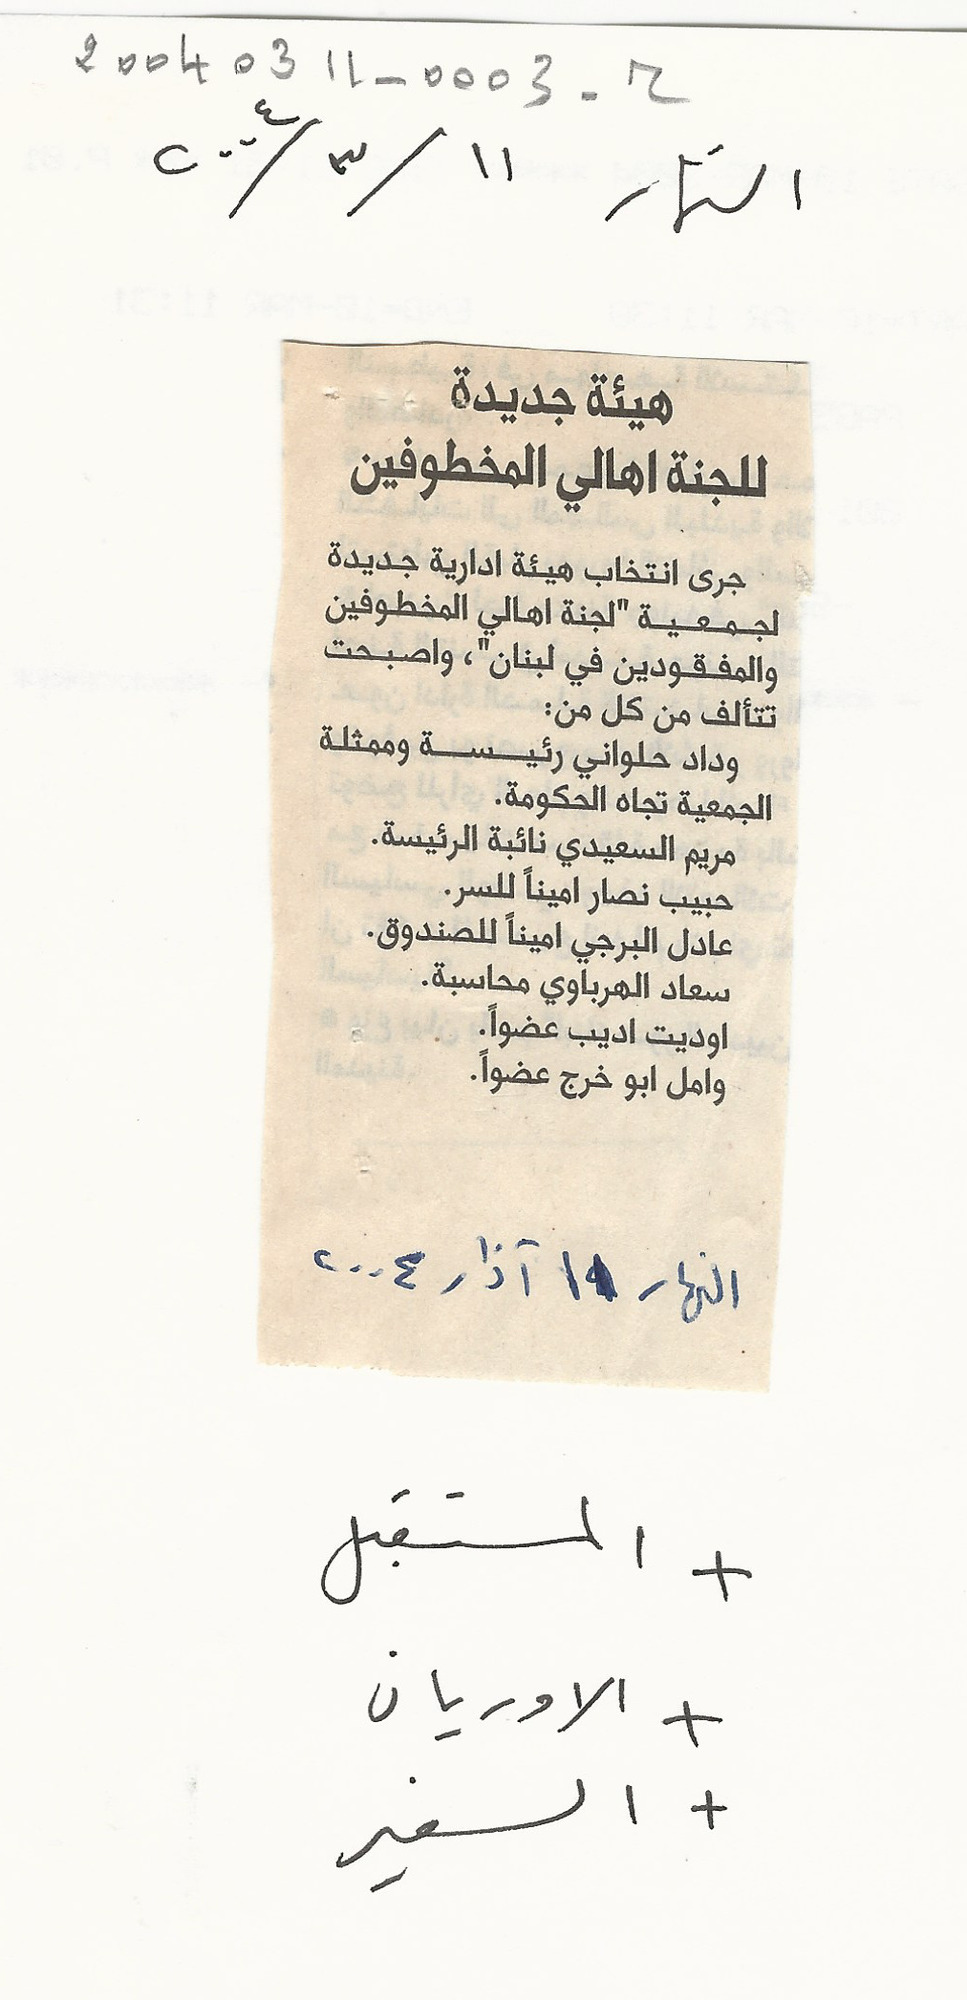 20040311-0003-R
النهار ١١/٣/٢٠٠٤
هيئة جديدة
للجنة اهالي المخطوفين
جرى انتخاب هيئة ادارية جديدة
لجمعية "لجنة اهالي المخطوفين
والمفقودين في لبنان"، واصبحت
تتألف من كل من:
وداد حلواني رئيسة وممثلة
الجمعية تجاه الحكومة.
مريم السعيدي نائبة الرئيسة.
حبيب نصار اميناً للسر.
عادل البرجي اميناً للصندوق.
سعاد الهرباوي محاسبة.
اوديت اديب عضواً.
وامل ابو خرج عضواً.
النهار ١١ آذار ٢٠٠٤
+ المستقبل
+ الاوريان
+ السفير